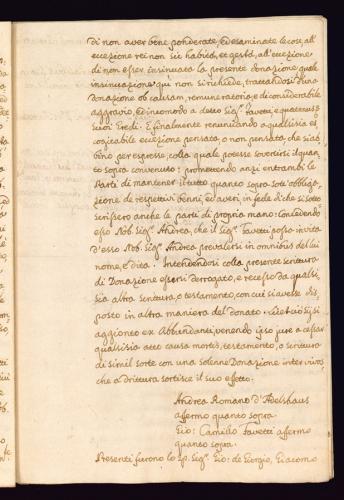 di non aver bene ponderate, ed esaminate le cose, all'
eccezione rei non sic habitæ, et gestæ, all'eccezione
di non esser insinuata la presente donazione, quale
insinuazione qui non si richiede, trattandosi d'una
donazione ob causam, remuneratoria, e di considerabile
aggravio, ed incomodo a detto Sig.r Favetti, e
suoi Eredi. E finalmente renunciando a qualsisia ec
cogitabile eccezione pensata, o non pensata, che s'ab
bino per espresse, colla quale potesse sovertirsi il quan
to sopra convenuto: promettendo anzi entrambi le
Parti di mantener il tutto quanto sopra sott'obliga
zione de respettivi benni, ed averi, in fede di che si sotto
scrissero anche le parti di propria mano: Concedendo
esso Nob. Sig.r Andrea, che il Sig.r Favetti possa in vita
d'esso Nob. Sig.r Andrea prevalersi in omnibus del lui
nome, e dita. Intendendosi colla presente scrittura
di Donazione essersi derogato, e recesso da qualsi
sia altra scrittura, o testamento, con cui si avesse dis
posto in altra maniera del donato.
aggionto ex Abbondanti, venendo ipso jure a cessar
qualsisia atto causa mortis, testamento, o scrittura
di simil sorte con una solenne Donazione inter vivos,
che a drittura sortisce il suo effetto.
Andrea Romano d'Adelshaus
affermo quanto sopra
Gio: Camillo Favetti affermo
quanto sopra.
Presenti furono lo Sp. Sig.r Gio: de Giorgio, Giacomo